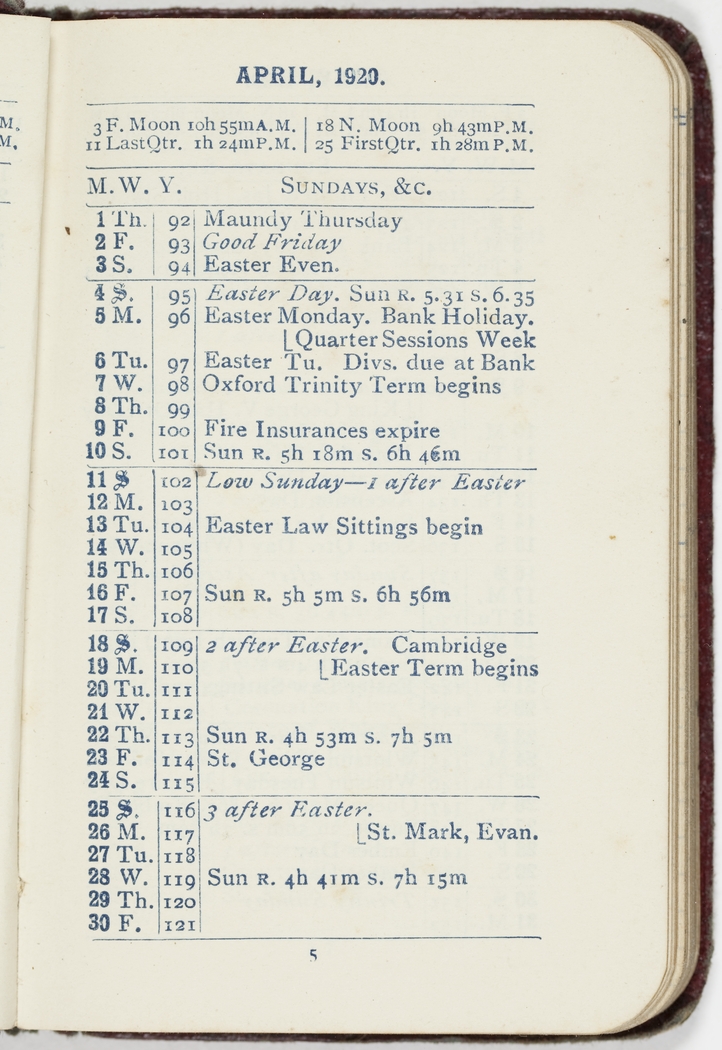 M.
M.
APRIL, 1920.
3 F. Moon 10h 55m A.M. | 18 N. Moon 9h 43m P.M.
11 Last Qtr. 1h 24m P.M. | 25 First Qtr. 1h 28m P.M.
M. W. Y. SUNDAYS, &C.
1 Th. 92 Maundy Thursday
2 F. 93 Good Friday
3 S. 94 Easter Even.
4 S. 95 Easter Day. Sun R. 5.31 s. 6.35
5 M. 96 Easter Monday. Bank Holiday.
⌊Quarter Sessions Week
6 Tu. 97 Easter Tu. Divs. due at Bank
7 W. 98 Oxford Trinity Term begins
8 Th. 99
9 F. 100 Fire Insurances expire
10 S. 101 Sun R. 5h 18m s. 6h 46m
11 S 102 Low Sunday—1 after Easter
12 M. 103
13 Tu. 104 Easter Law Sittings begin
14 W. 105
15 Th. 106
16 F. 107 Sun R. 5h 5m s. 6h 56m
17 S. 108
18 S. 109 2 after Easter. Cambridge
19 M. 110 ⌊Easter Term begins
20 Tu. 111
21 W. 112
22 Th. 113 Sun R. 4h 53m s. 7h 5m
23 F. 114 St. George
24 S. 115
25 S. 116 3 after Easter.
26 M. 117 ⌊St. Mark, Evan.
27 Tu. 118
28 W. 119 Sun R. 4h 41m s. 7h 15m
29 Th. 120
30 F. 121
5